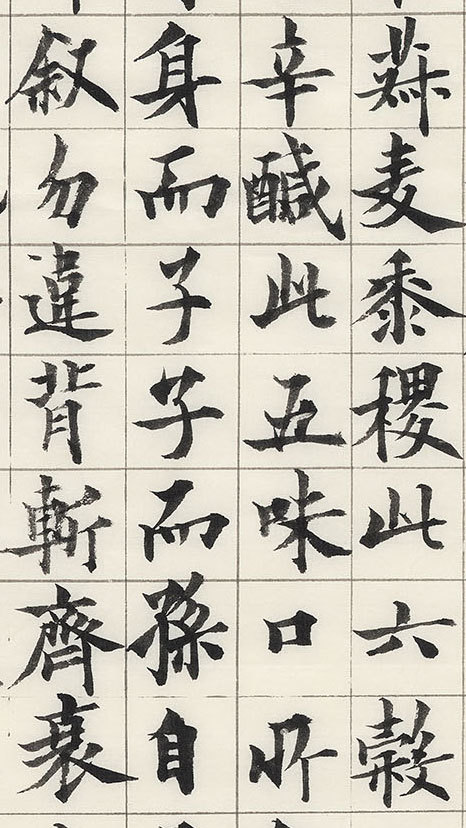 菽麦黍稷此六穀
辛醎此五味口所
身而子子而孫自
叙勿違背斬齊衰